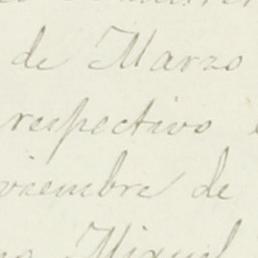 de Marzo
respectivo
viembre de
Miguel